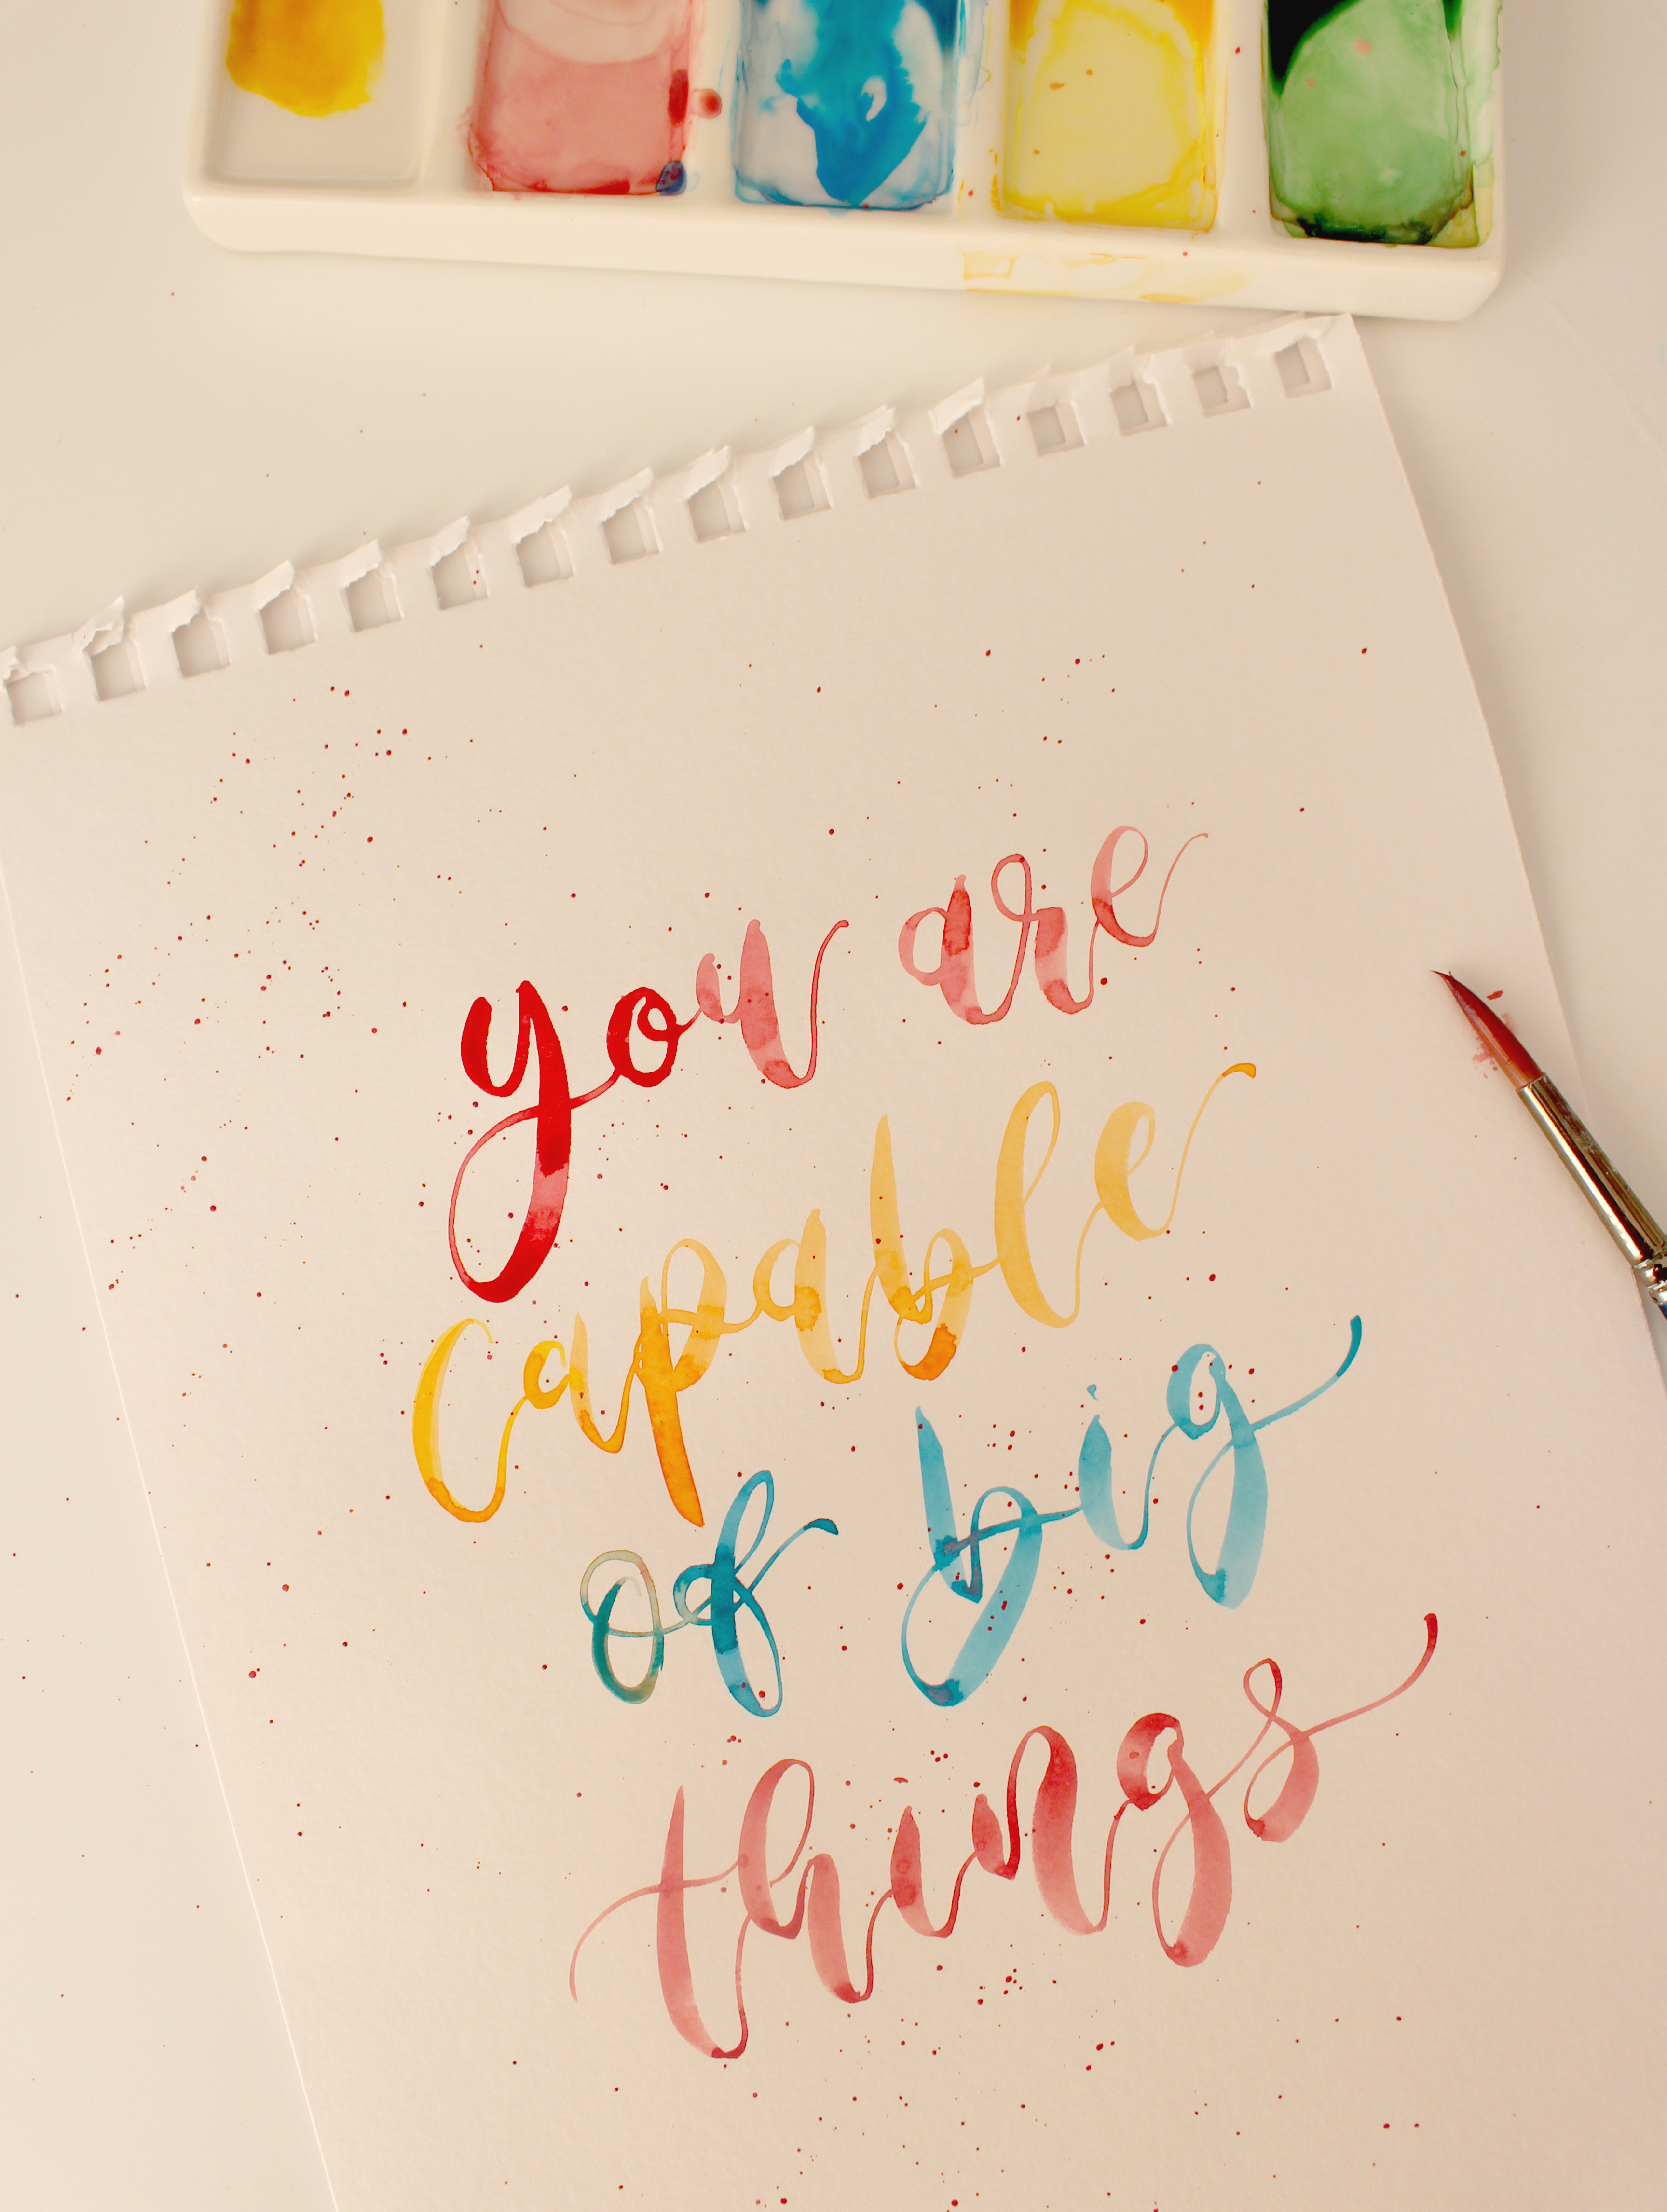 you are
capable
of big
things